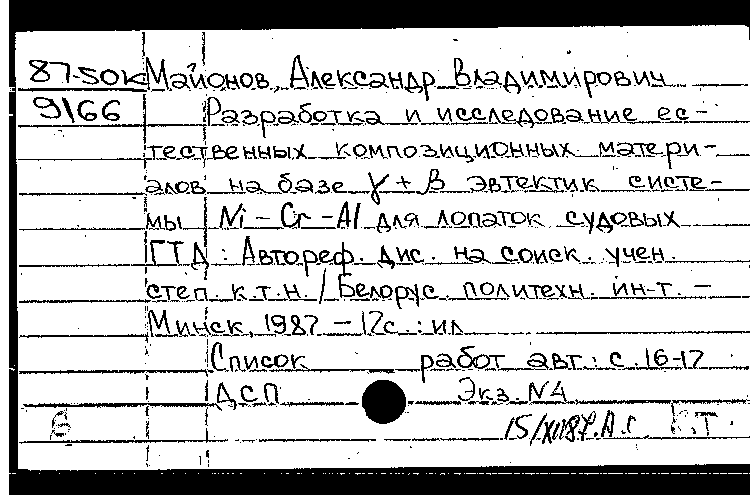 87-50к Майонов, Александр Владимирович
9166 Разработка и исследование ес-
тественных композиционных матери-
алов на базе γ + β эвтектик систе-
мы Ni - Cr - Al для лопаток судовых
ГТД : Автореф. дис. на соиск. учен.
степ. к.т.н. / Белорус. политехн. ин-т. -
Минск, 1987 - 17с. : ил
Список работ авт.: с. 16-17
ДСП Экз. N4
К.Т.